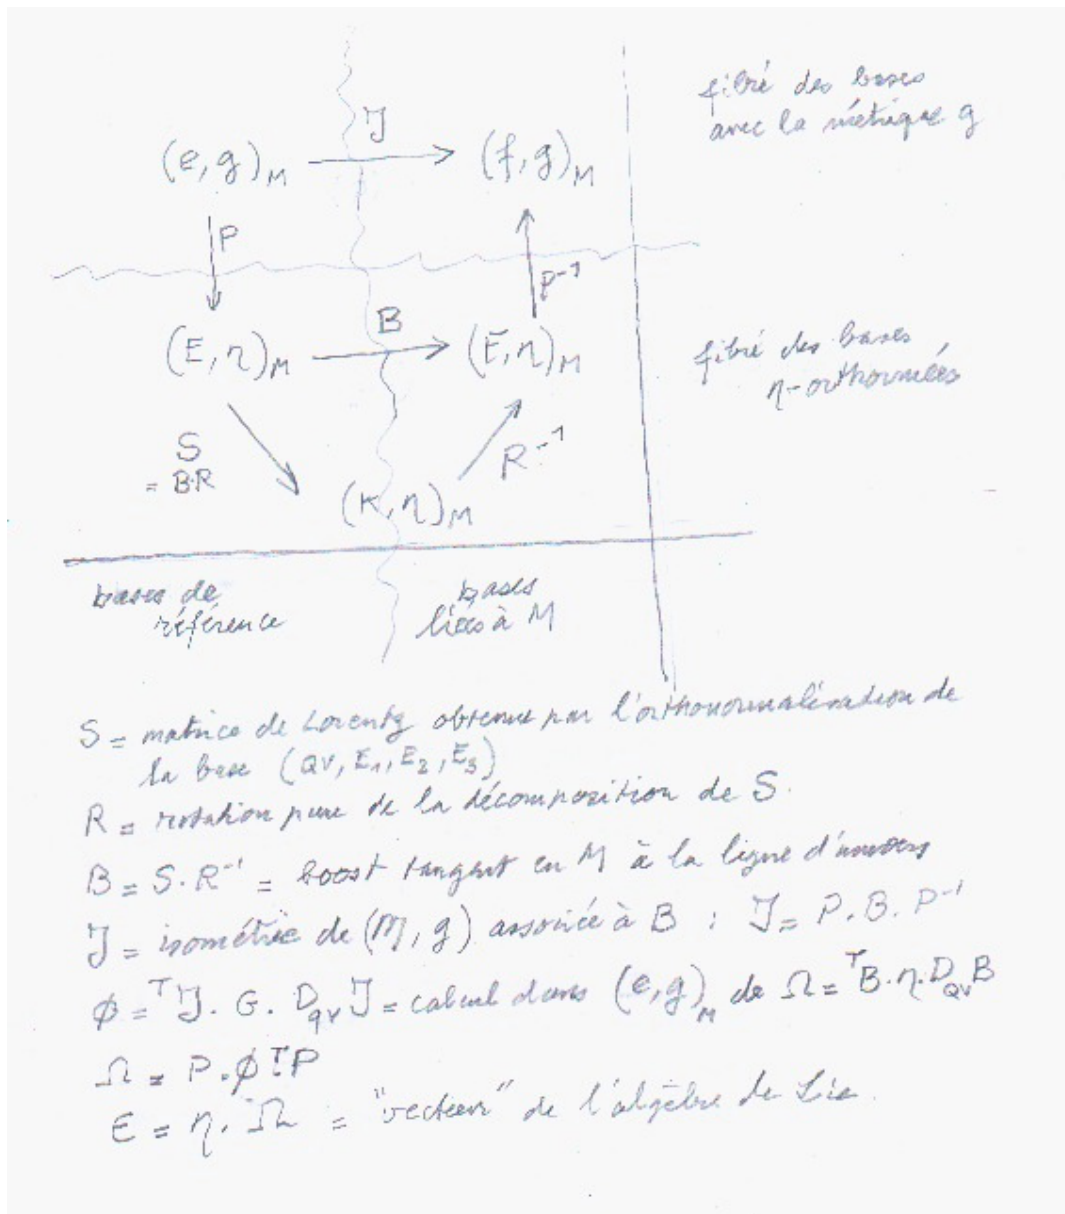 fibré des bases
avec la métrique g
(e, g)_M
J
(f, g)_M
P
P⁻¹
(E, η)_M
B
(F, η)_M
fibré des bases
η-orthonormées
S
= B·R
R⁻¹
(K, η)_M
bases de
référence
bases
liées à M
S = matrice de Lorentz obtenue par l'orthonormalisation de
la base (QV, E₁, E₂, E₃)
R = rotation pure de la décomposition de S.
B = S·R⁻¹ = boost tangent en M à la ligne d'univers
J = isométrie de (M, g) associée à B : J = P·B·P⁻¹
ϕ = ᵀJ·G·D_qv J = calcul dans (e, g)_M de Ω = ᵀB·η·D_QV B
Ω = P·ϕ ᵀP
Є = η·Ω = "vecteur" de l'algèbre de Lie.